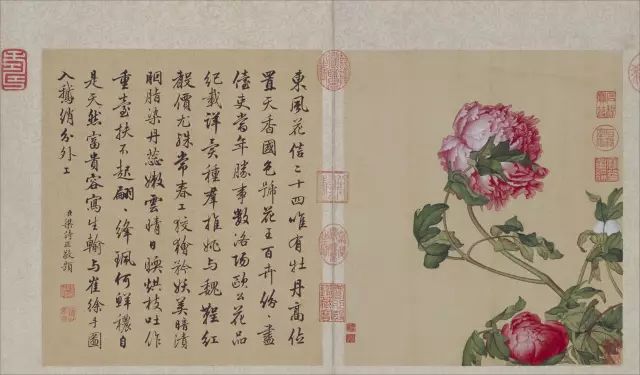 東風花信二十四唯有牡丹高位
置天香國色號花王百卉份〻盡
吏當年勝事數洛場歐公花品
紀載詳種羣推姚與魏鞓紅
聲價尤殊常春工狡獪矜妖美暗漬
胭脂染丹蕊嫩雲晴日暎烘枝吐作
重臺扶不起翩〻絳珮何鮮穠自
是天然富貴容寫生輸與崔徐手圖
入鵝綃分外工
臣梁詩正敬題